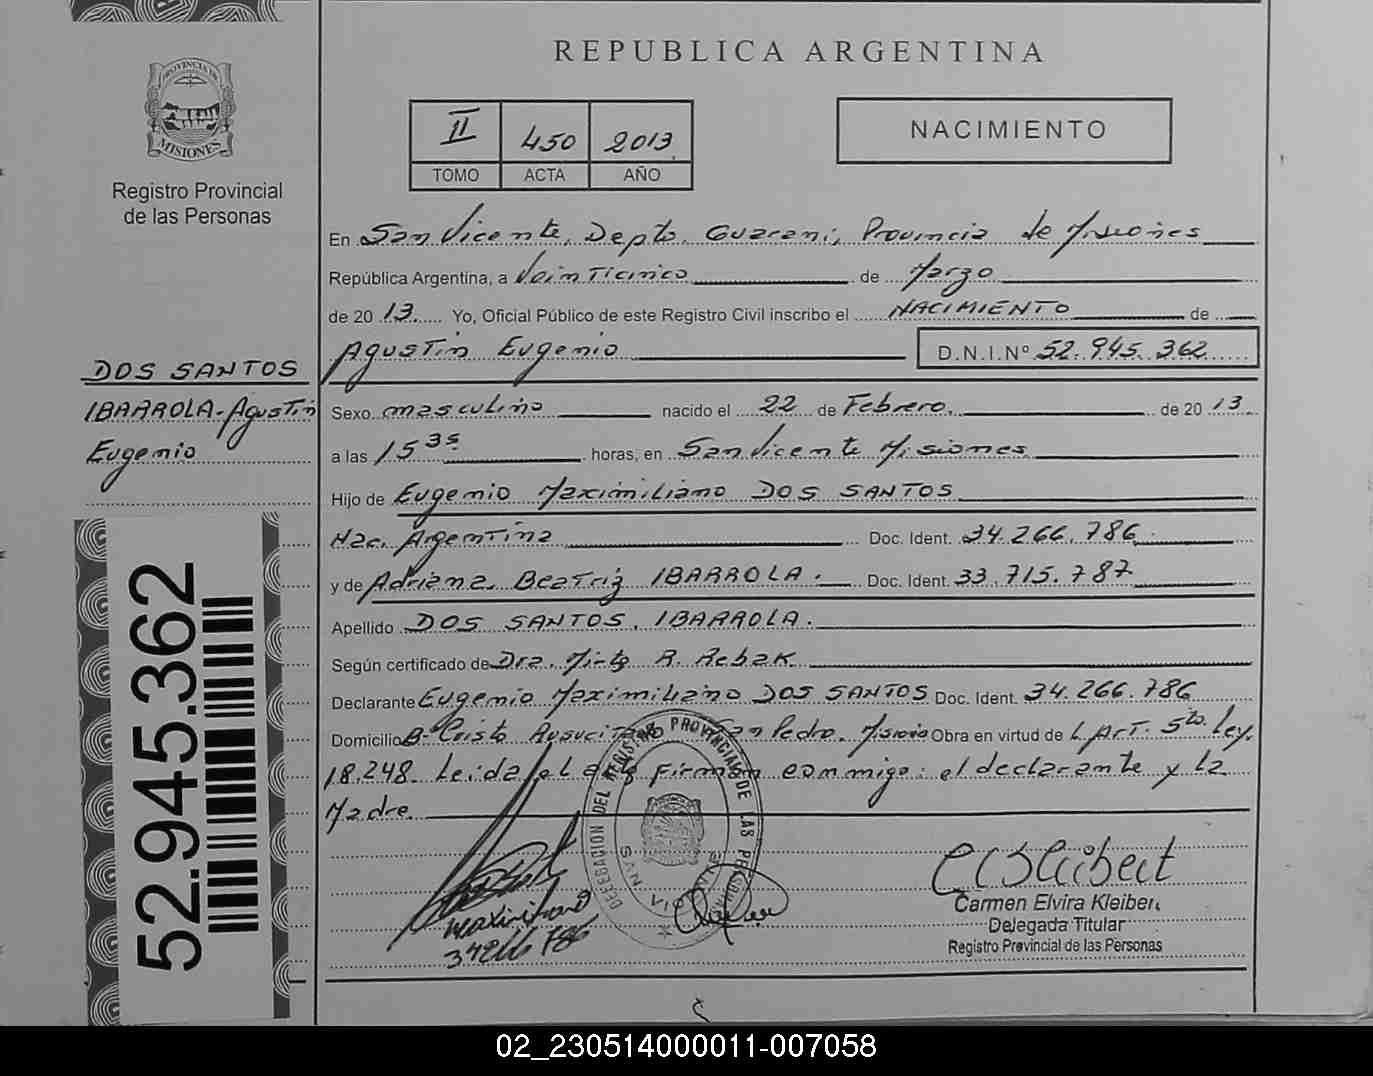 REPUBLICA ARGENTINA
PROVINCIA DE
MISIONES
Registro Provincial
de las Personas
II 450 2013
TOMO ACTA AÑO
NACIMIENTO
En San Vicente, Depto. Guarani, Provincia de Misiones
República Argentina, a Veinticinco de Marzo
de 2013. Yo, Oficial Público de este Registro Civil inscribo el NACIMIENTO de
Agustin Eugenio D.N.I.Nº 52.945.362
DOS SANTOS
IBARROLA-Agustin
Eugenio
Sexo masculino nacido el 22 de Febrero de 2013.
a las 15 35 horas, en San Vicente Misiones
Hijo de Eugenio Maximiliano DOS SANTOS
Nac. Argentina Doc. Ident. 34.266.786
y de Adriana Beatriz IBARROLA. Doc. Ident. 33.715.787
Apellido DOS SANTOS, IBARROLA.
Según certificado de Dra. Mirta R. Rebak
Declarante Eugenio Maximiliano DOS SANTOS Doc. Ident. 34.266.786
Domicilio Bº Cristo San Pedro. Misiones Obra en virtud de L. Art. 5to. Ley.
18.248. Leida el acta firman conmigo: el declarante y la
Madre.
52.945.362
DELEGACION DEL REGISTRO PROVINCIAL DE LAS PERSONAS
SAN VICENTE
Maximiliano
34266786
C E Kleibert
Carmen Elvira Kleiber
Delegada Titular
Registro Provincial de las Personas
02_230514000011-007058